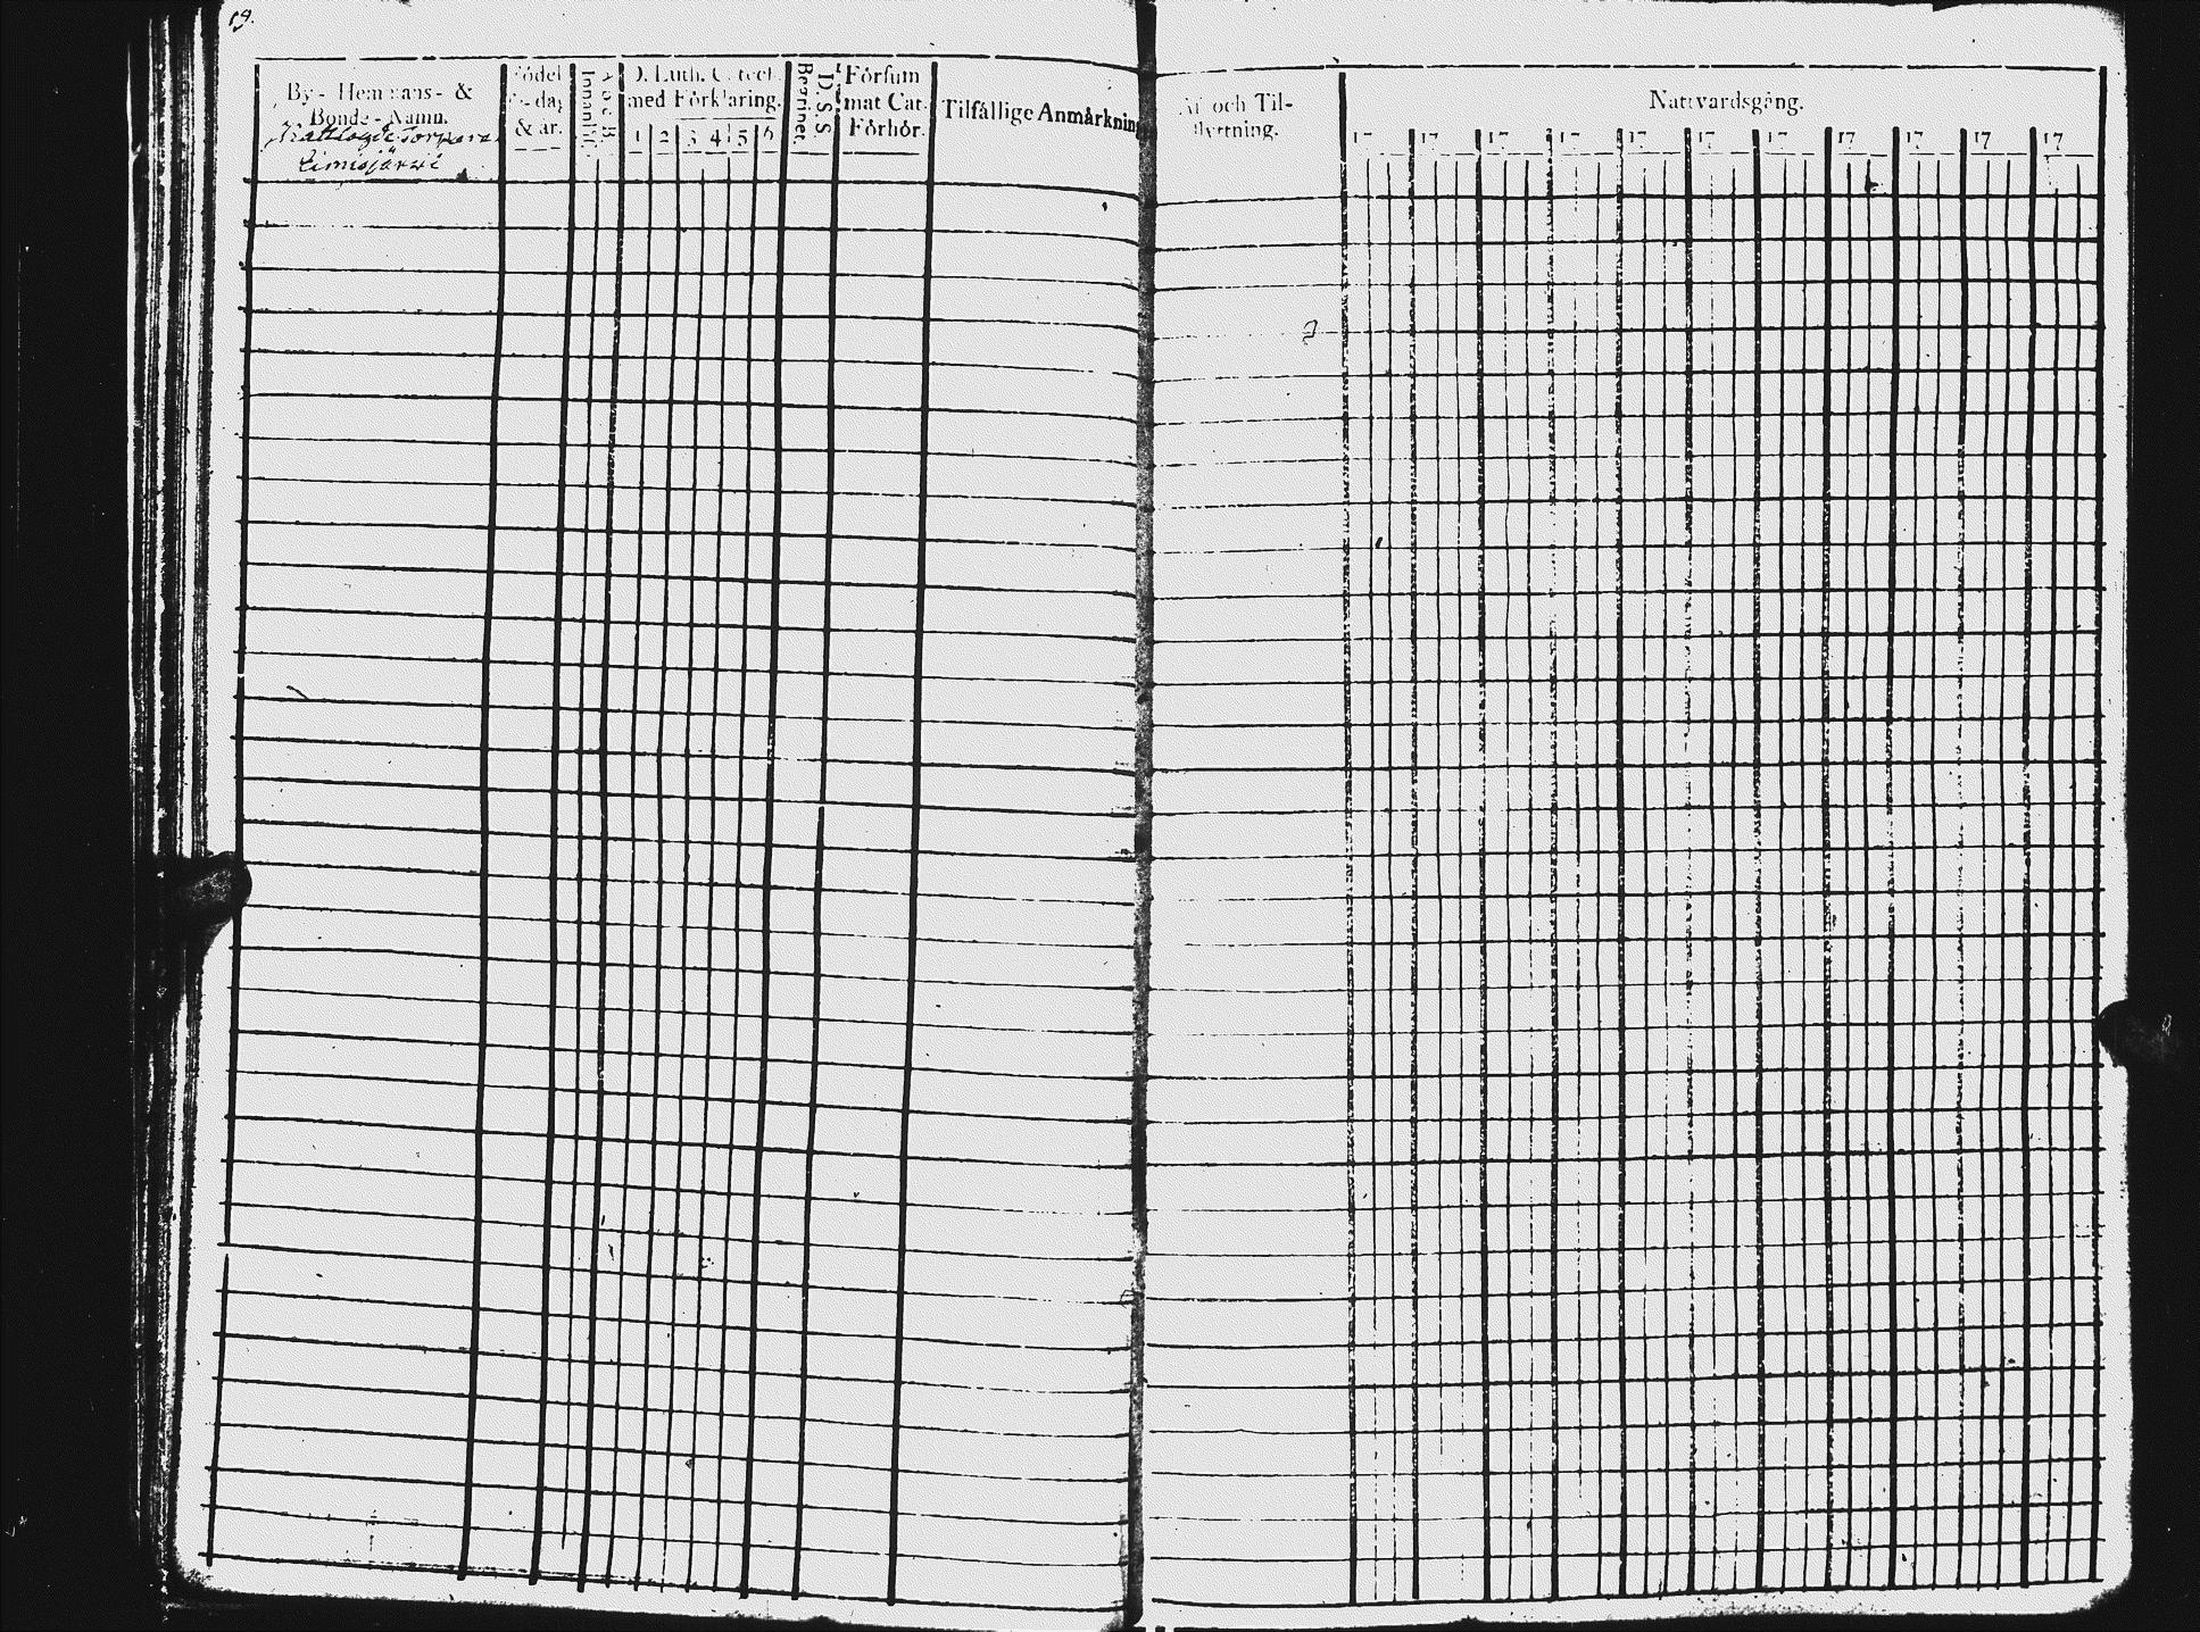 19.
By- Hemmans- &
Bonde-Namn.
Skattlagde Torpare
Limisjärwi
Födel
se-dag
& år.
Innanläs.
A b c B.
D. Luth. Catech.
med Förklaring.
1 2 3 4 5 6
Begrinet.
D. S. S.
Försum
mat Cat.
Förhör.
Tilfällige Anmärkning
Af och Til-
flyttning.
Nattvardsgång.
17 17 17 17 17 17 17 17 17 17 17